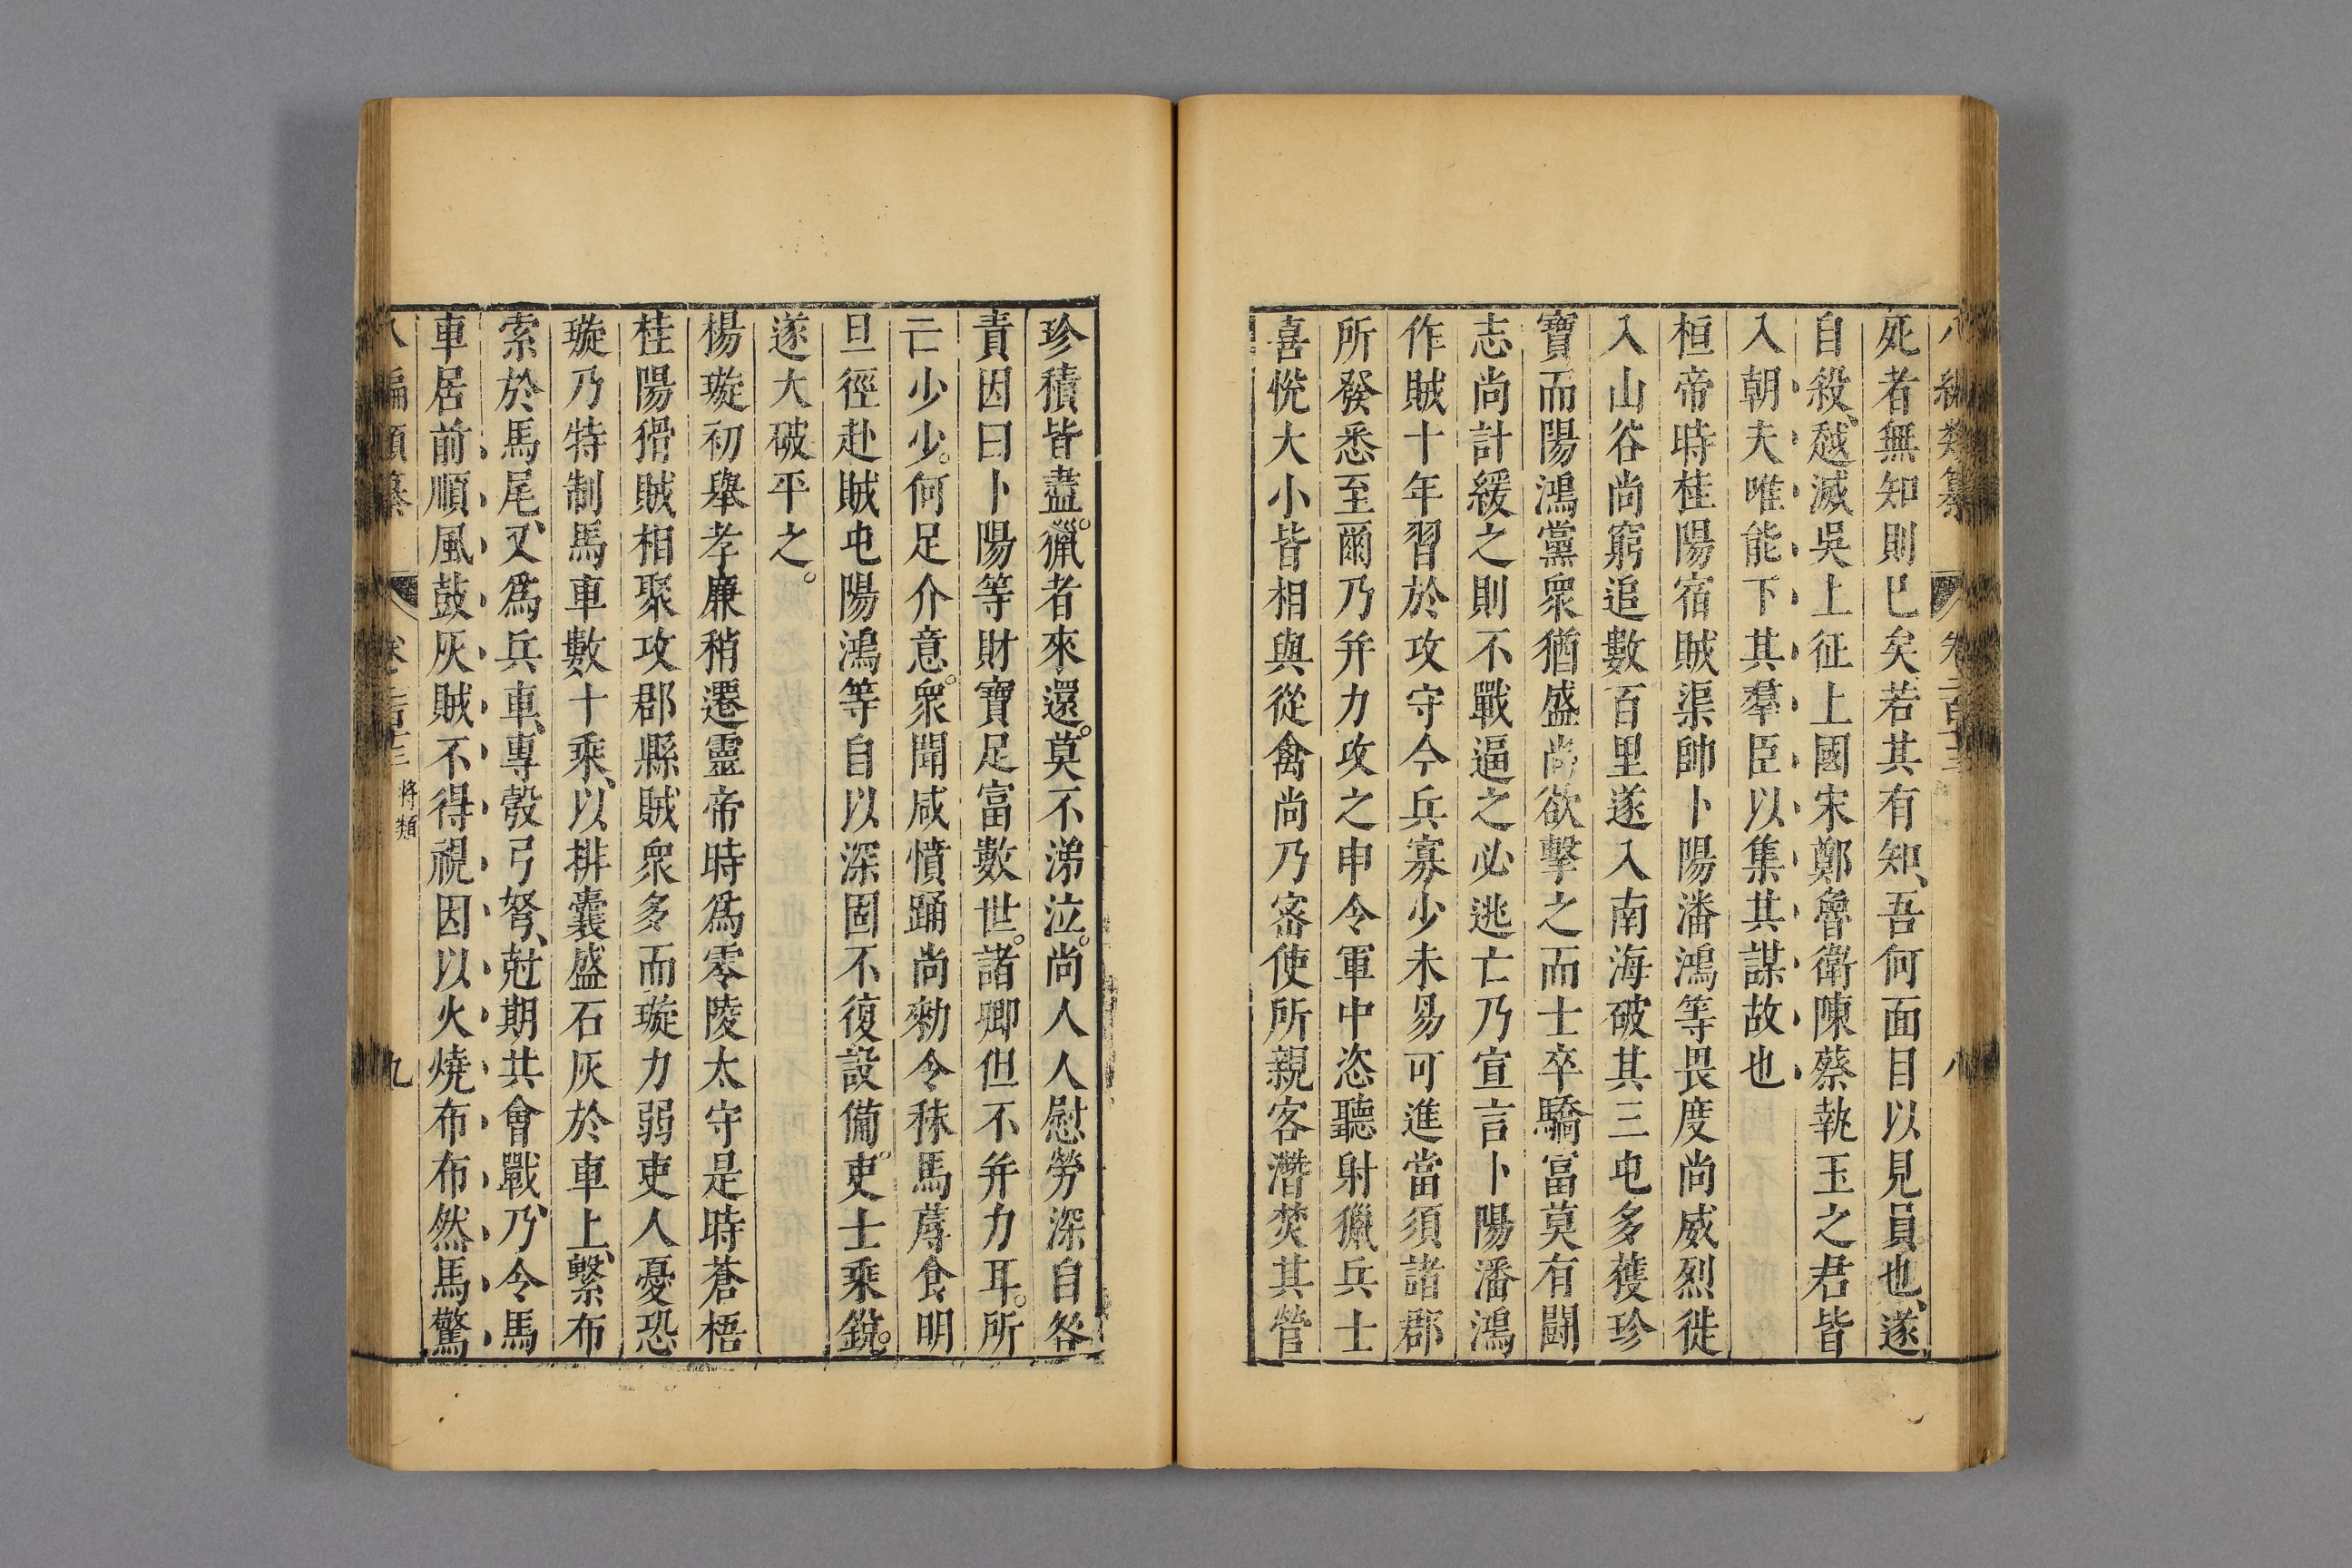 八編類纂 卷二百十三 八
死者無知則已矣若其有知、吾何面目以見員也、遂
自殺、越滅吳上征上國宋鄭魯衛陳蔡執玉之君皆
入朝夫唯能下其羣臣以集其謀故也
桓帝時桂陽宿賊渠帥卜陽潘鴻等畏度尚威烈徙
入山谷尚窮追數百里遂入南海破其三屯多獲珍
寶而陽鴻黨衆猶盛尚欲擊之而士卒驕富莫有鬭
志尚計緩之則不戰逼之必逃亡乃宣言卜陽潘鴻
作賊十年習於攻守今兵寡少未易可進當須諸郡
所發悉至爾乃并力攻之申令軍中恣聽射獵兵士
喜悅大小皆相與從禽尚乃密使所親客潛焚其營
珍積皆盡。獵者來還。莫不涕泣。尚人人慰勞深自咎
責因曰卜陽等財寶足富數世。諸卿但不并力耳。所
亡少少。何足介意。衆聞咸憤踊尚勑令秣馬蓐食明
旦徑赴賊屯陽鴻等自以深固不復設備。吏士乘銳。
遂大破平之。
楊璇初舉孝廉稍遷靈帝時爲零陵太守是時蒼梧
桂陽猾賊相聚攻郡縣賊衆多而璇力弱吏人憂恐
璇乃特制馬車數十乘、以排囊盛石灰於車上、繫布
索於馬尾、又爲兵車、專彀弓弩、尅期共會戰、乃令馬
車居前順風鼓灰賊不得視因以火燒布布然馬驚
八編類纂 卷二百十三 將類 九